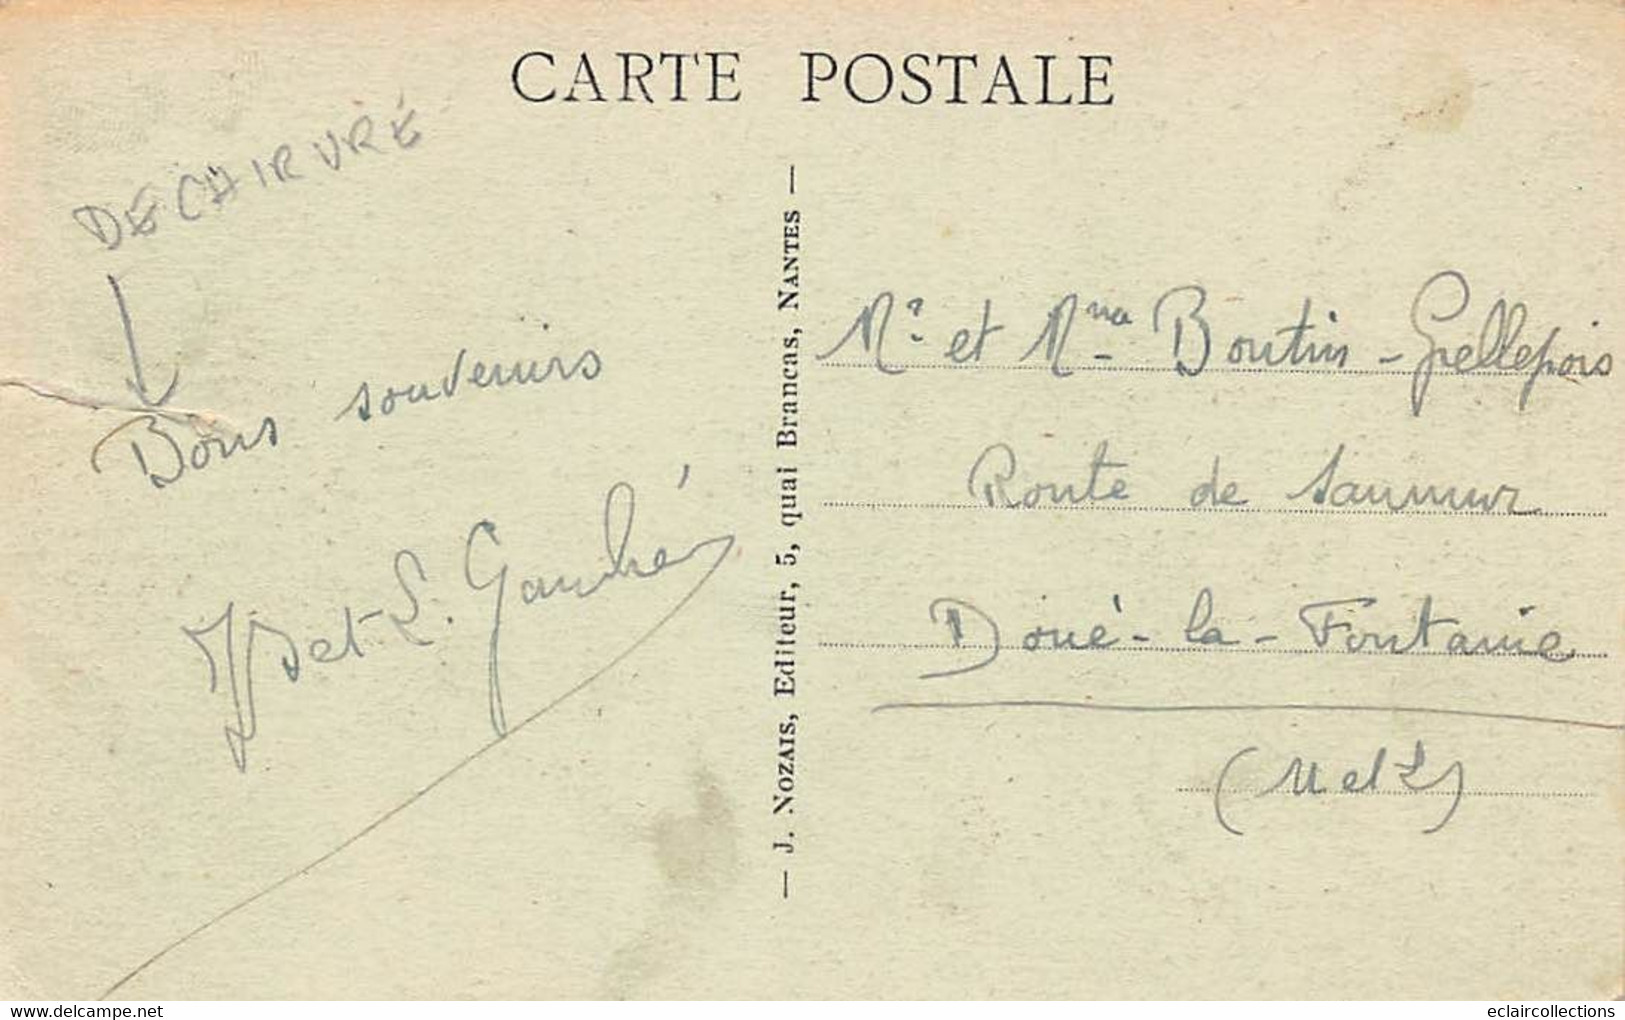 CARTE POSTALE
DECHIRURE
Bons souvenirs
et L. Gauché
— J. NOZAIS, Editeur, 5, quai Brancas, NANTES —
Mr et Mme Boutin - Grellepois
Route de Saumur
Doué-la-Fontaine
(M et L)
eclaircollections